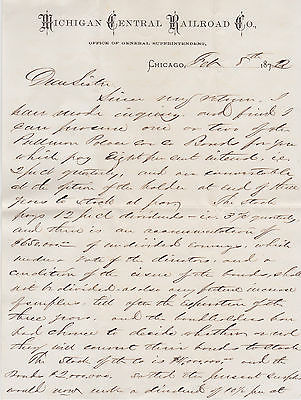 Michigan Central Railroad Co.,
OFFICE OF GENERAL SUPERINTENDENT,
CHICAGO, Feb 5th 187
Dear Sister
Since my return I
have made inquiry and find I
can procure one or two of the
Pullman Palace Car Co Bonds for you
which pay Eight per cent interest, i.e.
2 pr ct quarterly, and are convertable
at the option of the holder at end of three
years to stock at par. The stock
pays 12 pr ct dividends - i.e. 3% quarterly
and there is an accumulation of
of undivided earnings, which
under a vote of the directors, and a
condition of the issue of the bonds, shall
not be divided, as also any future increase
of surplus, till after the expiration of the
three years, and the bondholders have
had chance to decide whether or not
they will convert their bonds to stock.
The Stock of the Co is and the
Bonds $2,000,000. so that the present surplus
would now with a dividend of 10% pr ct